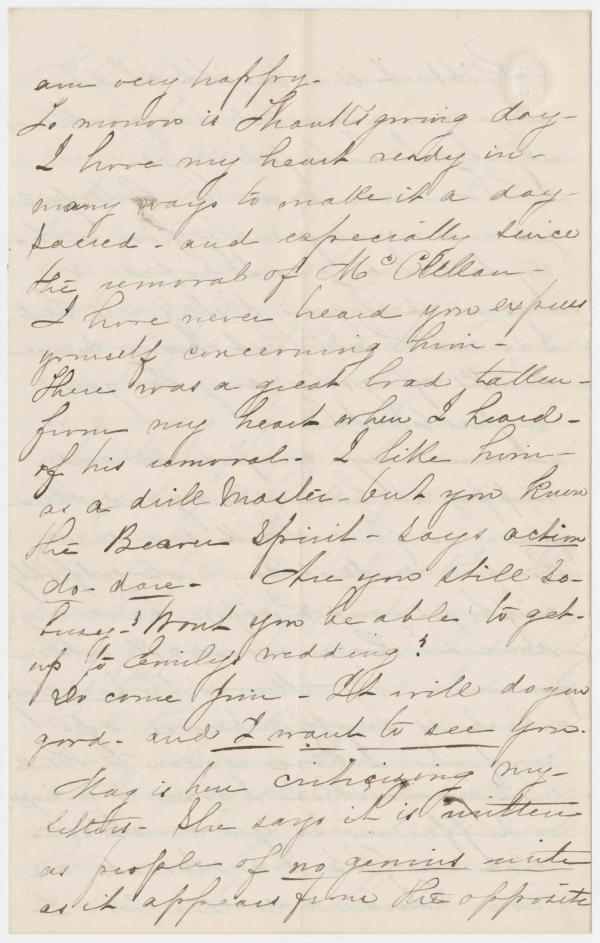 am very happy-
To morrow is Thanksgiving day-
I have my heart ready in-
many ways to make it a day-
sacred- and especially since
the removal of Mc Clellan-
I have never heard you express
yourself concerning him-
There was a great load taken-
from my heart when I heard-
of his removal- I like him-
as a drill Master- but you know
the Beaver Spirit- says action
do- dare- Are you still so-
busy-? Wont you be able to get-
up to Emilys wedding?
Do come Jim- It will do you
good- and I want to see you.
Mag is here criticizing my-
letters- She says it is written
as people of no genius write
as it appears from the opposite